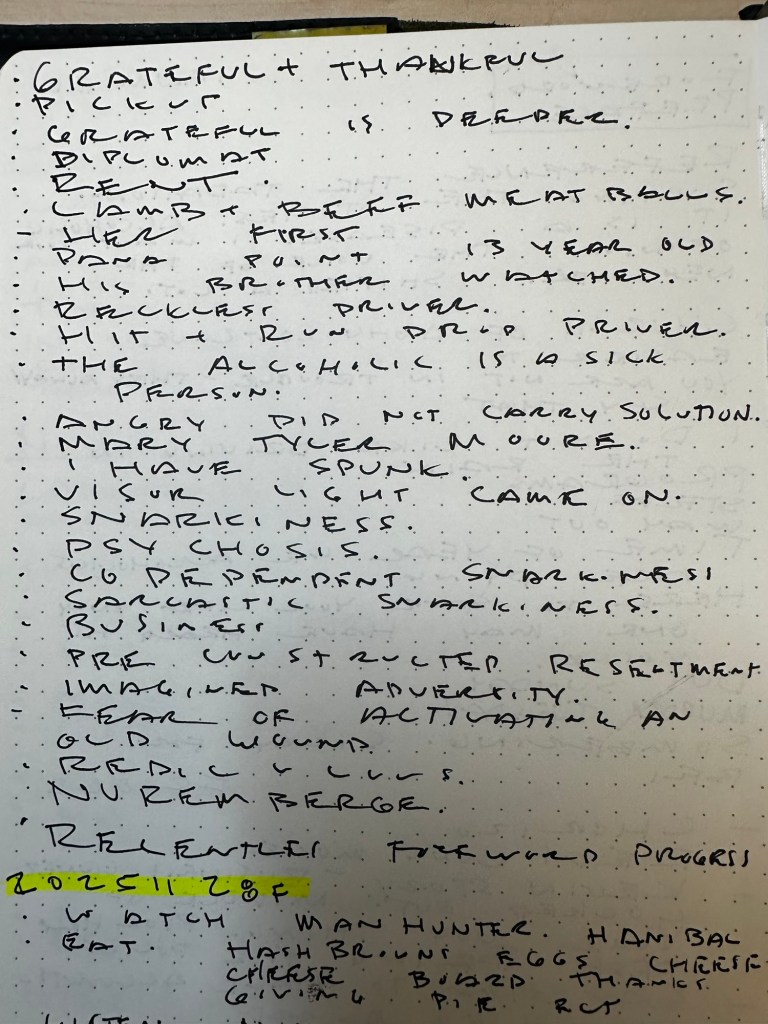 · GRATEFUL + THANKFUL
· PICKUP
· GRATEFUL IS DEEPER.
· DIPLOMAT
· RENT.
· LAMB + BEEF MEATBALLS.
- HER FIRST
· DANA POINT 13 YEAR OLD
· HIS BROTHER WATCHED.
· RECKLESS DRIVER.
· HIT + RUN DROP DRIVER.
· THE ALCOHOLIC IS A SICK
PERSON.
· ANGRY DID NOT CARRY SOLUTION.
· MARY TYLER MOORE.
· I HAVE SPUNK.
· VISOR LIGHT CAME ON.
· SNARKINESS.
· PSYCHOSIS.
· CODEPENDENT SNARKINESS
· SARCASTIC SNARKINESS.
· BUSINESS
· PRE CONSTRUCTED RESENTMENT
· IMAGINED ADVERSITY.
- FEAR OF ACTIVATING AN
OLD WOUND
· REDICULOUS.
NUREMBERGE.
· RELENTLES FOREWORD PROGRESS
20251128F
· WATCH MANHUNTER. HANIBAL
· EAT. HASHBROWNS EGGS CHEESE
CHEESE BOARD THANKS
GIVING PIE